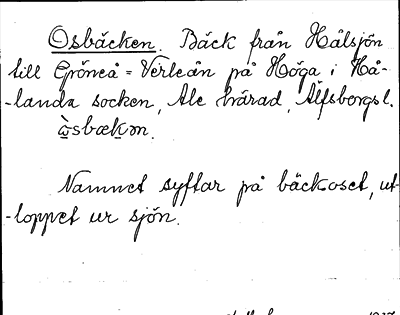 Osbäcken. Bäck från Hålsjön
till Gröneå = Verleån på Höga i Hå-
-landa socken, Ale härad, Älfsbergs l.
ὼsbækən.
Namnet syftar på bäckoset, ut-
-loppet ur sjön.